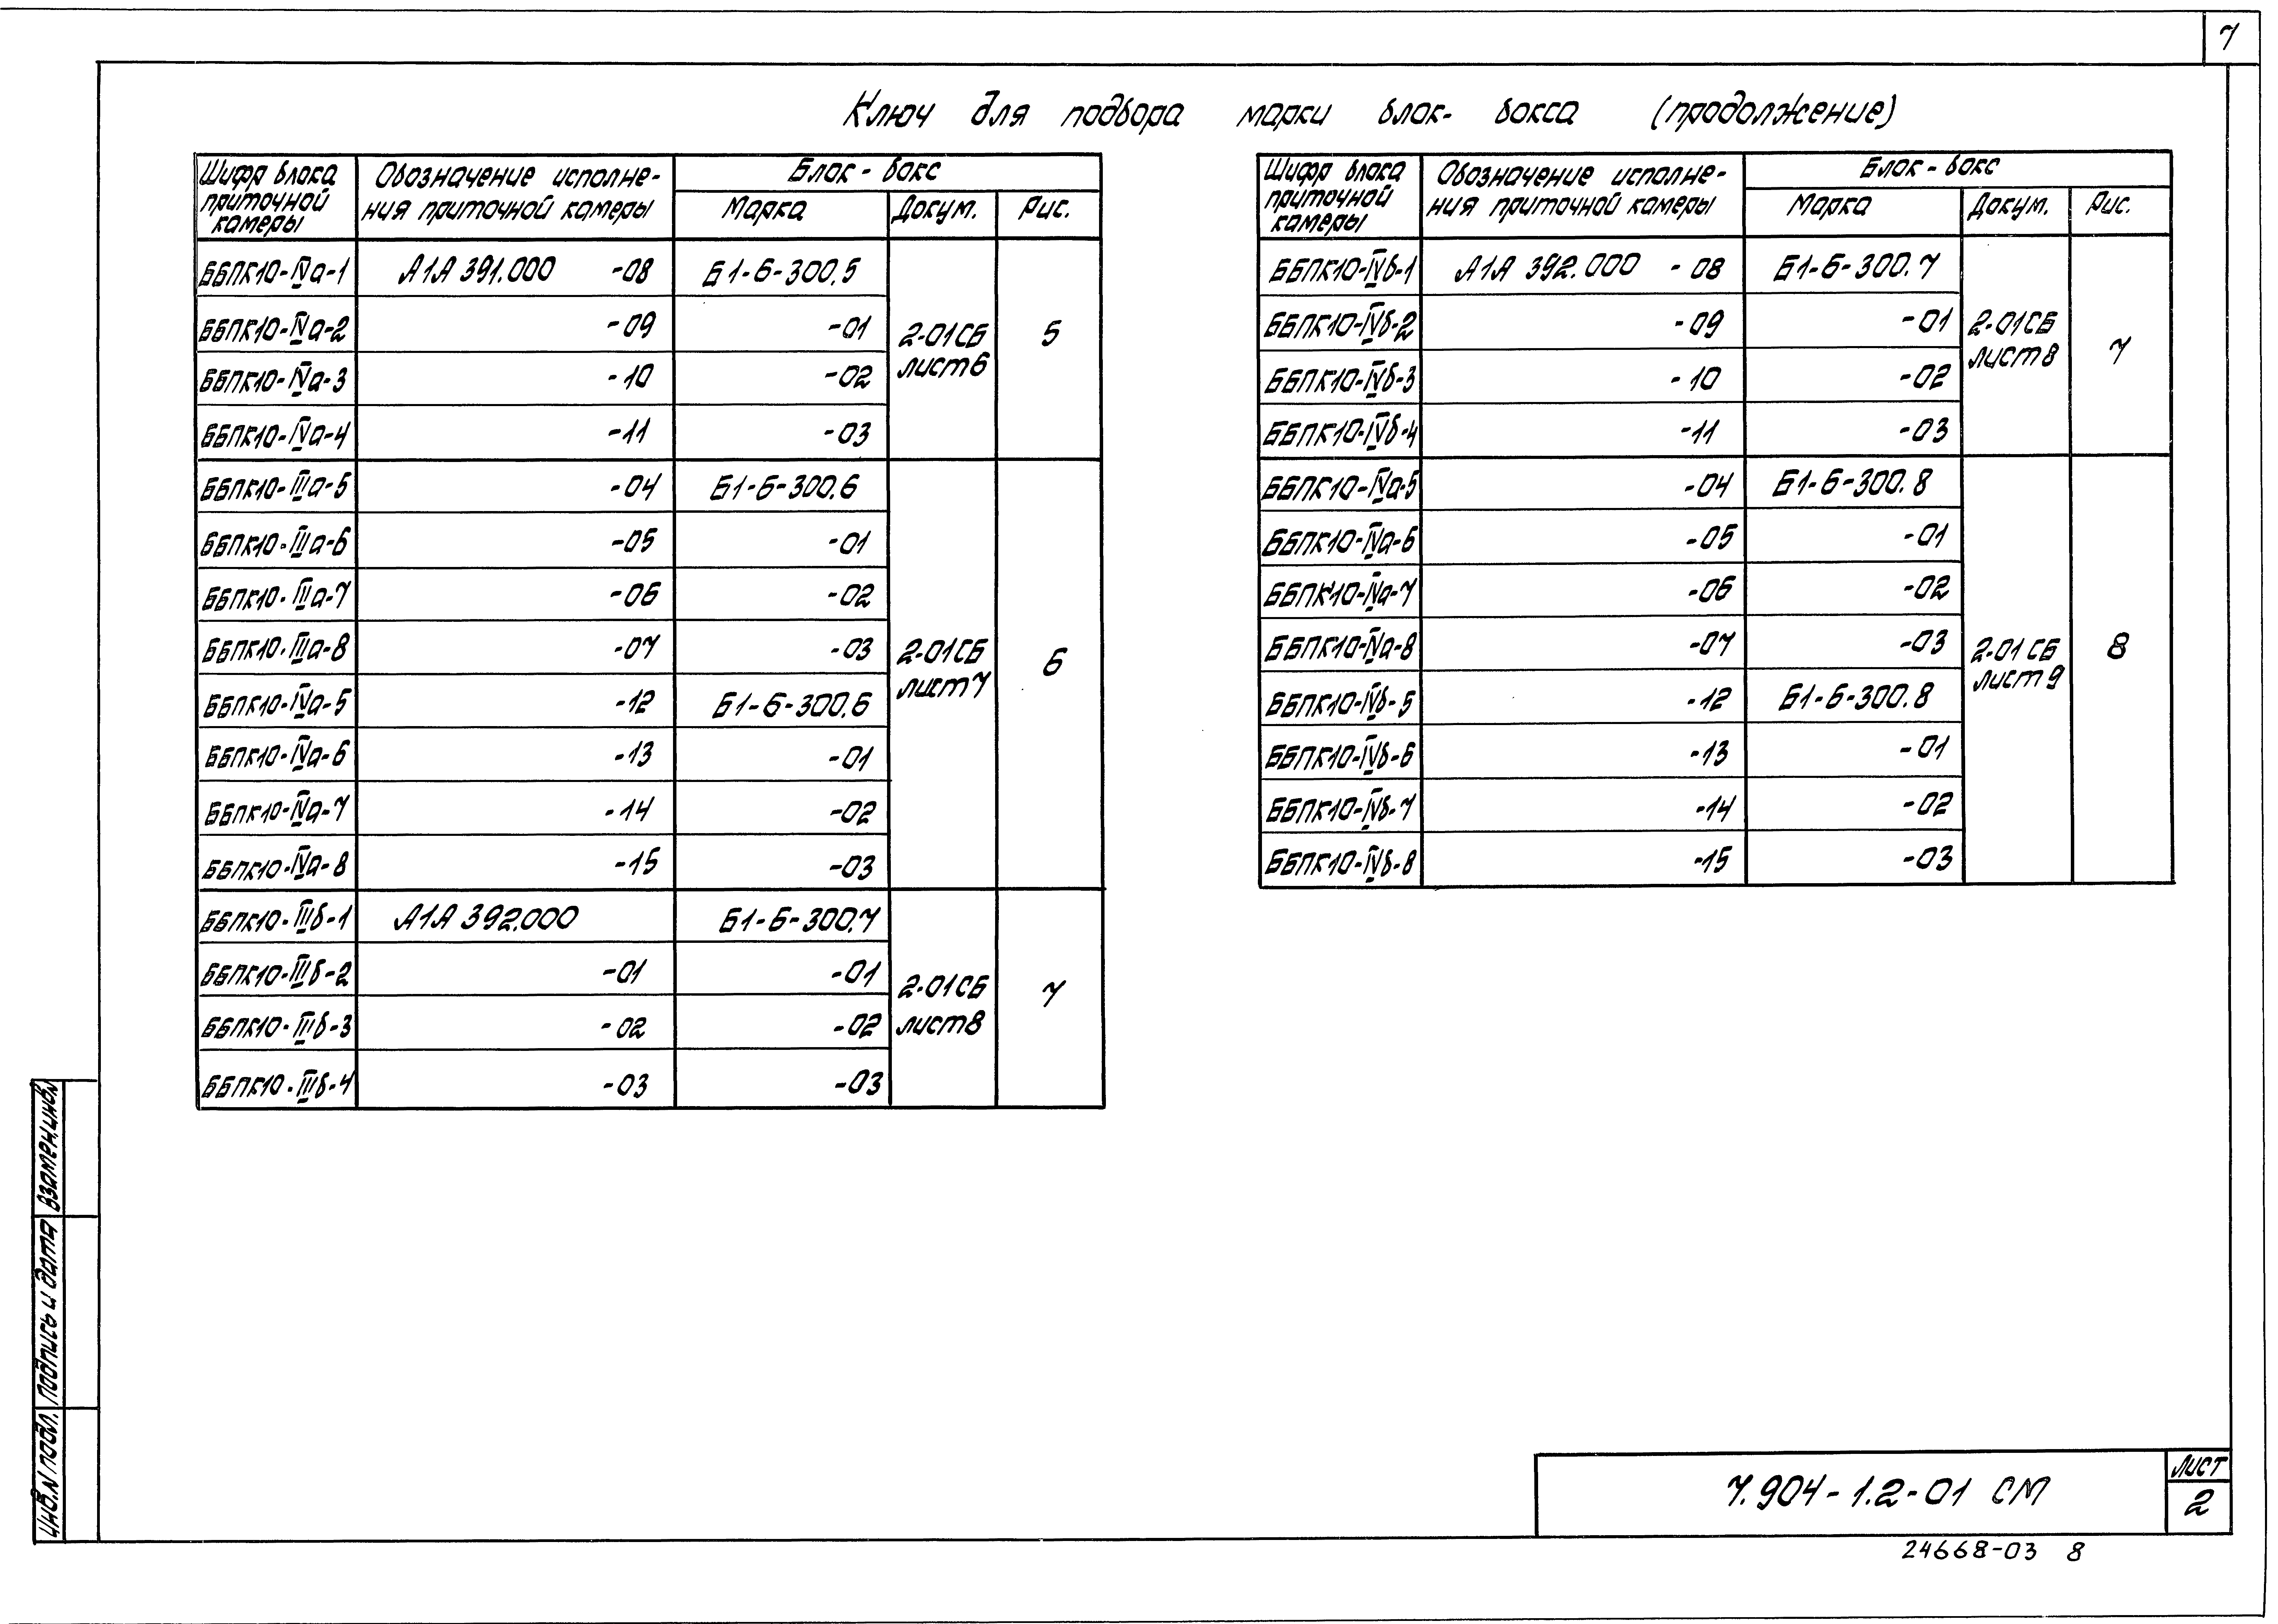 7
Ключ для подбора марки блок- бокса (продолжение)
Шифр блока приточной камеры | Обозначение исполне- ния приточной камеры | Блок - бокс
Марка | Докум. | Рис.
ББПК10-IVа-1 | А1А 391.000 -08 | Б1-Б-300.5 | 2-01СБ лист6 | 5
ББПК10-IVа-2 | -09 | -01
ББПК10-IVа-3 | -10 | -02
ББПК10-IVа-4 | -11 | -03
ББПК10-IIIа-5 | -04 | Б1-Б-300.6 | 2-01СБ лист7 | 6
ББПК10-IIIа-6 | -05 | -01
ББПК10-IIIа-7 | -06 | -02
ББПК10-IIIа-8 | -07 | -03
ББПК10-IVа-5 | -12 | Б1-Б-300.6
ББПК10-IVа-6 | -13 | -01
ББПК10-IVа-7 | -14 | -02
ББПК10-IVа-8 | -15 | -03
ББПК10-IIIб-1 | А1А 392.000 | Б1-Б-300.7 | 2-01СБ лист8 | 7
ББПК10-IIIб-2 | -01 | -01
ББПК10-IIIб-3 | -02 | -02
ББПК10-IIIб-4 | -03 | -03
Шифр блока приточной камеры | Обозначение исполне- ния приточной камеры | Блок - бокс
Марка | Докум. | Рис.
ББПК10-IVб-1 | А1А 392.000 - 08 | Б1-Б-300.7 | 2-01СБ лист8 | 7
ББПК10-IVб-2 | -09 | -01
ББПК10-IVб-3 | -10 | -02
ББПК10-IVб-4 | -11 | -03
ББПК10-IVа-5 | -04 | Б1-Б-300.8 | 2-01 СБ лист 9 | 8
ББПК10-IVа-6 | -05 | -01
ББПК10-IVа-7 | -06 | -02
ББПК10-IVа-8 | -07 | -03
ББПК10-IVб-5 | -12 | Б1-Б-300.8
ББПК10-IVб-6 | -13 | -01
ББПК10-IVб-7 | -14 | -02
ББПК10-IVб-8 | -15 | -03
Взамен.инв.№
Подпись и дата
Инв.№ подл.
7.904-1.2-01 СМ
Лист
2
24668-03 8